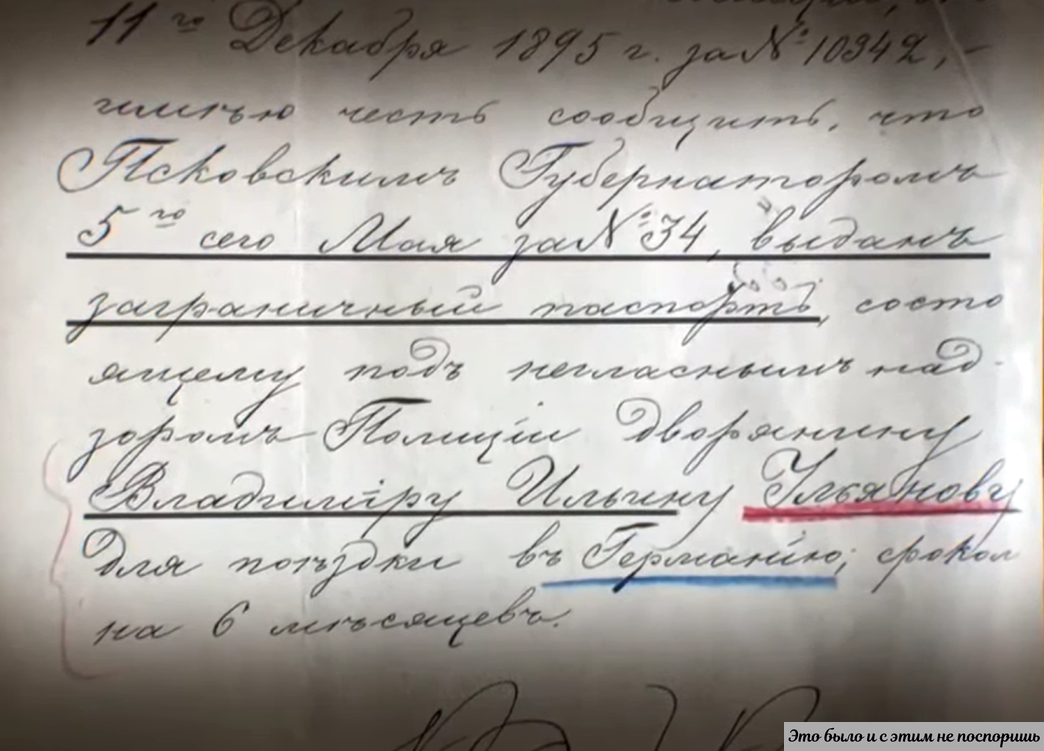 11го Декабря 1895 г. за № 10342,-
имѣю честь сообщить, что
Псковскимъ Губернаторомъ
5го сего Мая за № 34, выданъ
заграничный паспортъ, состо
ящему подъ негласнымъ над-
зоромъ Полиціи дворянину
Владиміру Ильину Ульянову
для поѣздки въ Германію; срокомъ
на 6 мѣсяцевъ.
Это было и с этим не поспоришь